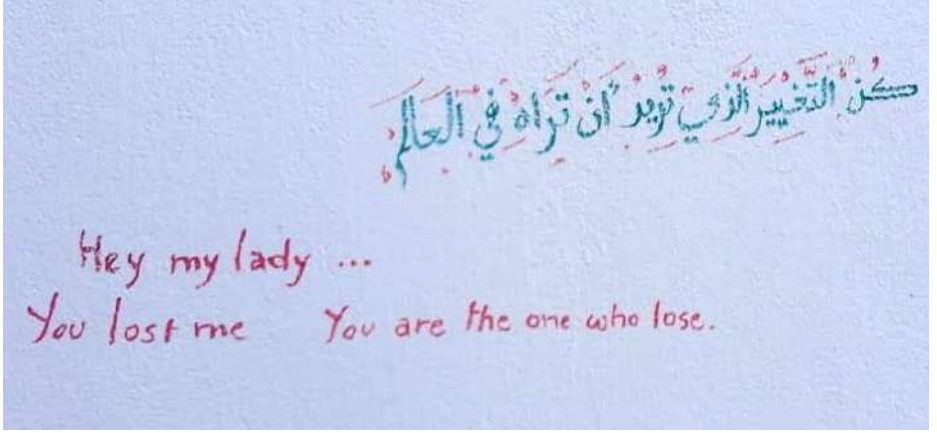 كُن التَّغْيِيرَ الَّذِي تُرِيدُ أَنْ تَرَاهُ فِي الْعَالَمِ
Hey my lady ...
You lost me You are the one who lose.